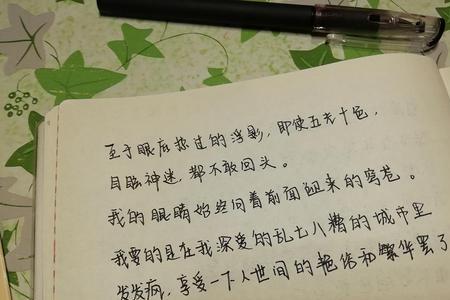 至于眼底掠过的浮影，即使五光十色，
目眩神迷，都不敢回头。
我的眼睛始终向着前面迎来的穹苍。
我要的是在我深爱的乱七八糟的城市里
发发疯，享受一下人世间的艳俗和繁华罢了